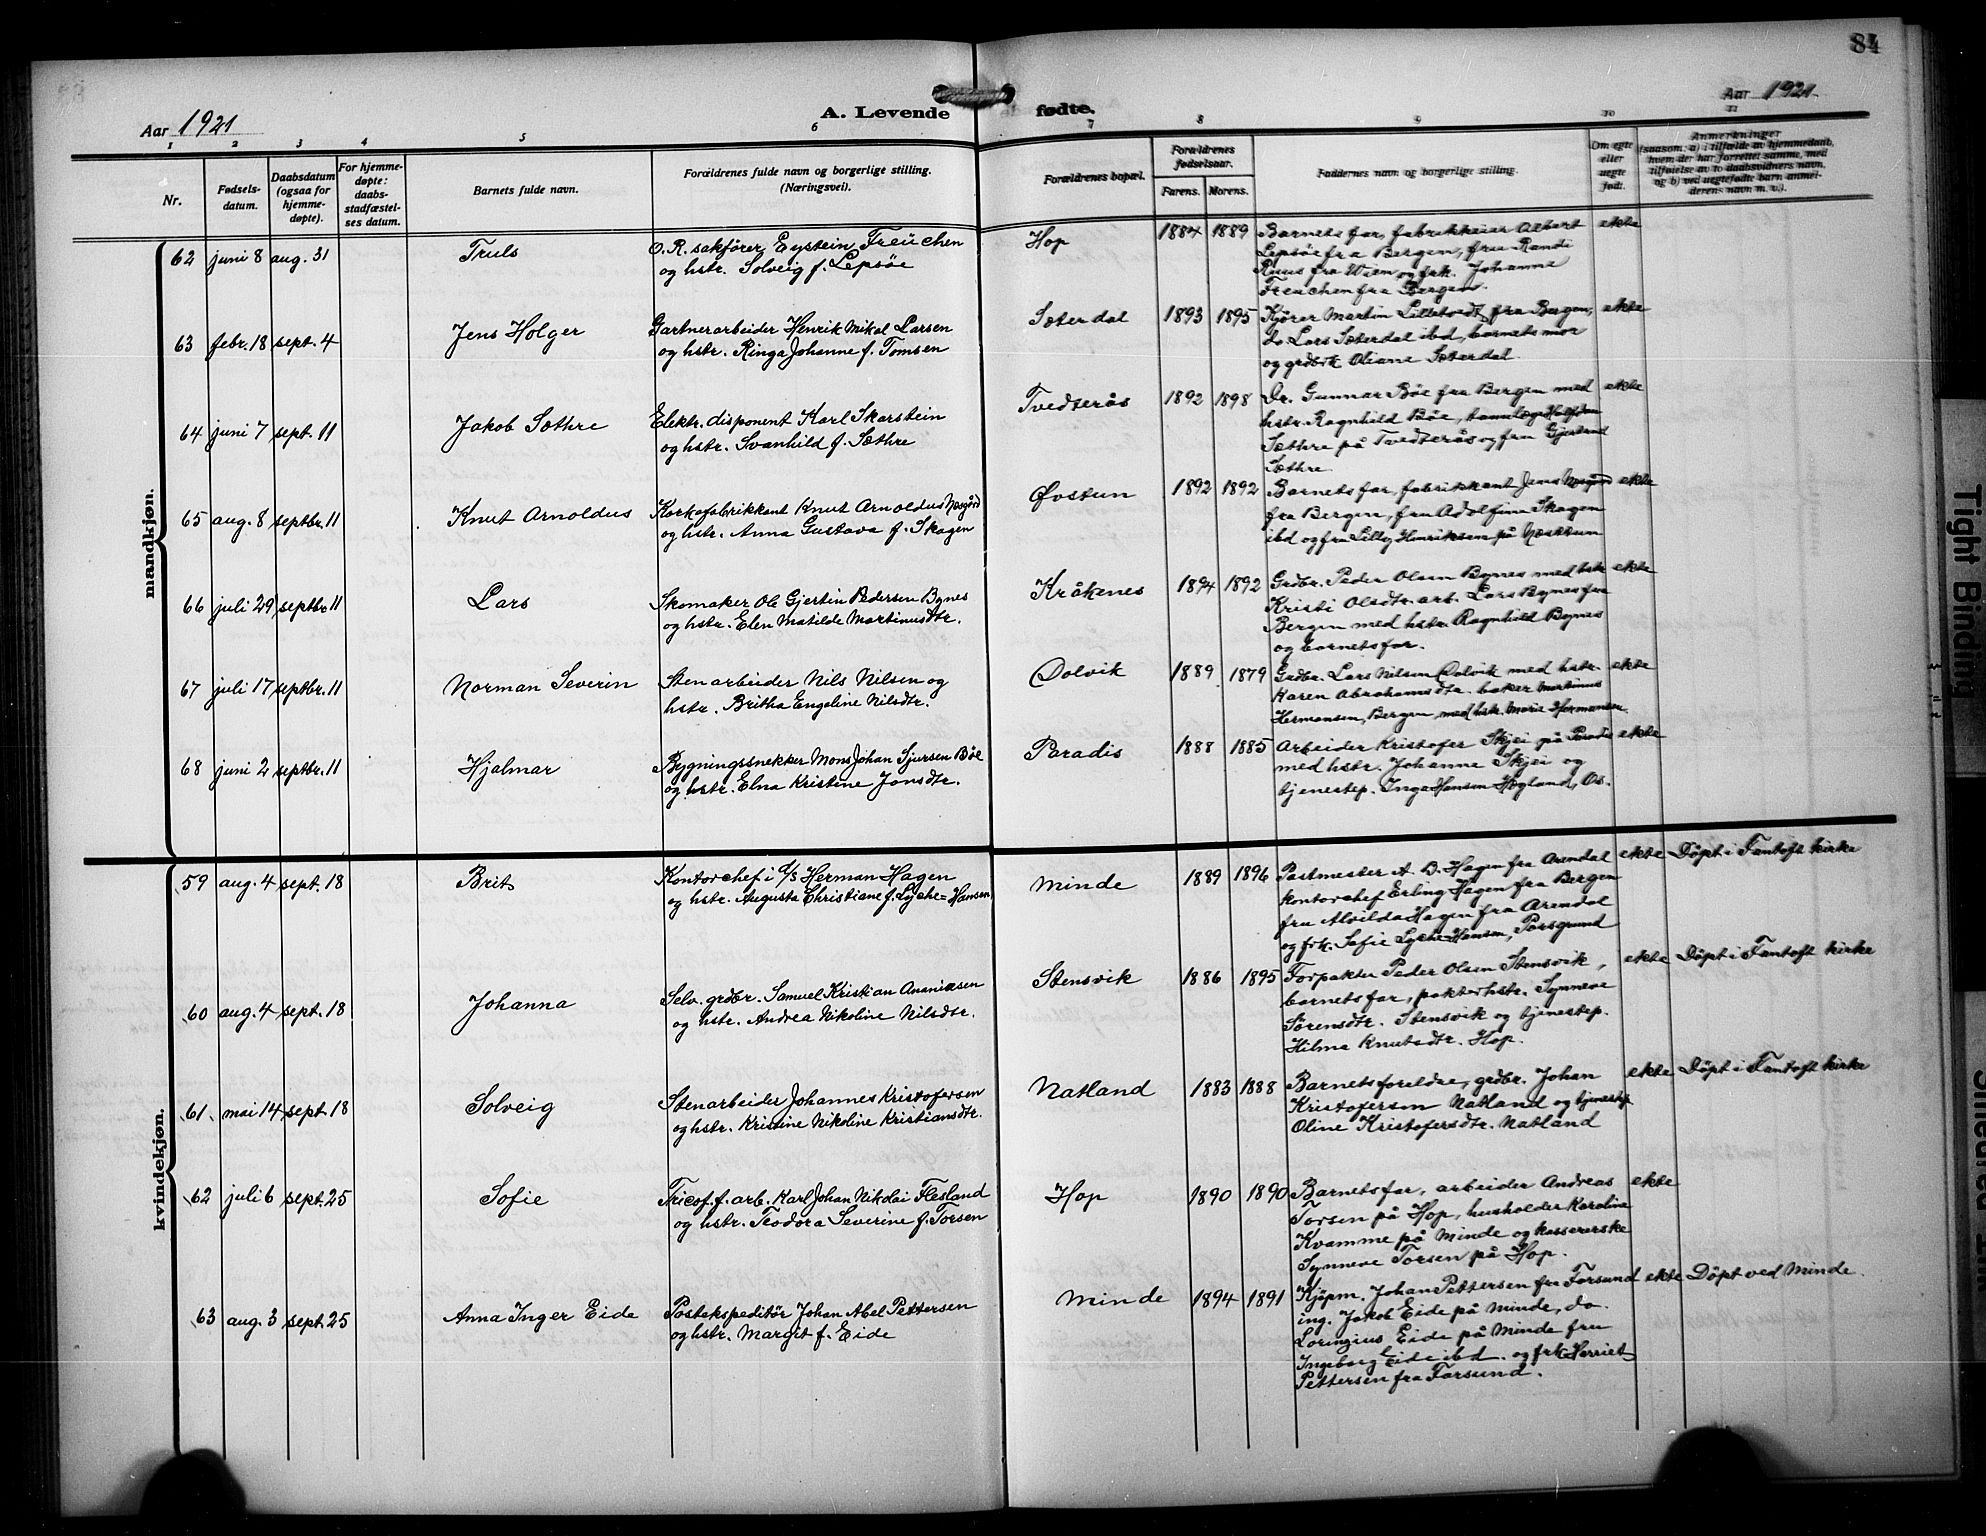 84
Aar 1921
A. Levende fødte.
Aar 1921.
1 2 3 4 5 6 7 8 9 10 11
Nr.
Fødsels-
datum.
Daabsdatum
(ogsaa for
hjemme-
døpte).
For hjemme-
døpte:
daabs-
stadfæstel-
ses datum.
Barnets fulde navn.
Forældrenes fulde navn og borgerlige stilling.
(Næringsvei).
Forældrenes bopæl.
Forældrenes
fødselsaar.
Farens. Morens.
Faddernes navn og borgerlige stilling.
Om egte
eller
uegte
født.
Anmerkninger
(saasom: a) i tilfælde av hjemmedaab,
hvem der har forrettet samme, med
tilføielse av to daabsvidners navn,
og b) ved uegtefødte barn anmel-
derens navn m. v.).
mandkjøn.
62 juni 8 aug. 31 Truls
O.R. sakfører Eystein Freüchen
og hstr. Solveig f. Lepsöe
Hop 1884 1889
Barnets far, fabrikkeier Albert
Lepsöe fra Bergen, fru Randi
fra Wien og frk. Johanne
Freuchen fra Bergen.
ekte
63 febr. 18 sept. 4 Jens Holger
Gartnerarbeider Henrik Mikal Larsen
og hstr. Ringa Johanne f. Tomsen
Sæterdal 1893 1895
Kjörer Martin fra Bergen,
do Lars Sæterdal ibd, barnets mor
og grdbrk Oliane Sæterdal.
ekte
64 juni 7 sept. 11 Jakob Sæthre
Elektr. disponent Karl Skarstein
og hstr. Svanhild f. Sæthre
Tvedterås 1892 1898
Dr. Gunnar Böe fra Bergen med
hstr. Ragnhild Böe, tannlæge Halfdan
Sæthre på Tvedterås og fru Gjertrud
Sæthre.
ekte
65 aug. 8 septbr. 11 Knut Arnoldus
Korkefabrikkant Knut Arnoldus Næsgård
og hstr. Anna Gustava f. Skagen
Øvstun 1892 1892
Barnets far, fabrikkant Jens Næsgård
fra Bergen, fru Adolfine Skagen
ibd og fru Lilly Henriksen på Næsttun
ekte
66 juli 29 septbr. 11 Lars
Skomaker Ole Gjertin Pedersen Bynes
og hstr. Elen Matilde Martinusdtr.
Kråkenes 1894 1892
Grdbr. Peder Olsen Bynes med hstr
Kristi Olsdtr. arb. Lars Bynes fra
Bergen med hstr. Ragnhild Bynes
og barnets far.
ekte
67 juli 17 septbr. 11 Norman Severin
Stenarbeider Nils Nilsen og
hstr. Britha Engeline Nilsdtr.
Dolvik 1889 1879
Grdbr. Lars Nilsen Dolvik med hstr.
Karen Abrahamsdtr. baker Martinus
Hermansen, Bergen, med hstr. Marie Hermansen.
ekte
68 juni 2 septbr. 11 Hjalmar
Bygningssnekker Mons Johan Sjursen Böe
og hstr. Elna Kristine Jonsdtr.
Paradis 1888 1885
Arbeider Kristofer Skjei på Paradis
med hstr. Johanne Skjei og
tjenestep. Inga Hansen Høgland, Os.
ekte
kvindekjøn.
59 aug. 4 sept. 18 Brit
Kontorchef i A/S Herman Hagen
og hstr. Augusta Christiane f. Lyche=Hansen
Minde 1889 1896
Postmester A. B. Hagen fra Arendal
kontorchef Erling Hagen fra Bergen
fru Alvilda Hagen fra Arendal
og frk. Sofie Lyche Hansen, Porsgrund
ekte Döpt i Fantoft kirke
60 aug. 4 sept. 18 Johanna
Selv. grdbr. Samuel Kristian Ananiasen
og hstr. Andrea Nikoline Nilsdtr.
Stensvik 1886 1895
Forpakter Peder Olsen Stensvik,
barnets far, pakterhstr. Synneve
Sörensdtr. Stensvik og tjenestep.
Hilma Knutsdtr. Hop.
ekte Döpt i Fantoft kirke
61 mai 14 sept. 18 Solveig
Stenarbeider Johannes Kristofersen
og hstr. Kristine Nikoline Kristiansdtr.
Natland 1883 1888
Barnets foreldre, grdbr. Johan
Kristofersen Natland og tjenestep
Oline Kristofersdtr. Natland
ekte Döpt i Fantoft kirke
62 juli 6 sept. 25 Sofie
Tricof.f. arb. Karl Johan Nikolai Flesland
og hstr. Teodora Severine f. Torsen
Hop 1890 1890
Barnets far, arbeider Andreas
Torsen på Hop, husholder Karoline
Kvamme på Minde og kassererske
Synneve Torsen på Hop.
ekte
63 aug. 3 sept. 25 Anna Inger Eide
Postekspeditör Johan Abel Pettersen
og hstr. Margit f. Eide
Minde 1894 1891
Kjöpm. Johan Pettersen fra Farsund
ing. Jakob Eide på Minde, do.
Loringius Eide på Minde fru
Ingeborg Eide ibd. og frk Harriet
Pettersen fra Farsund.
ekte Döpt ved Minde.
Tight Binding